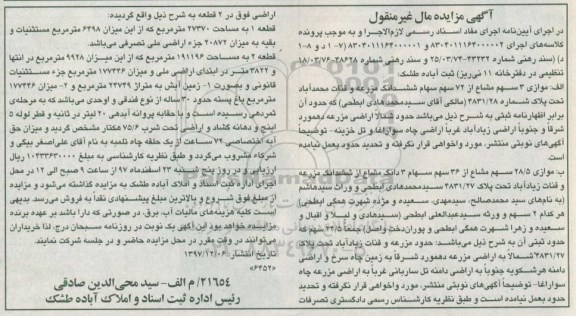 آگهی مزایده مال غیرمنقول
در اجرای آیین‌نامه اجرای مفاد اسناد رسمی لازم‌الاجرا و به موجب پرونده
کلاسه‌های اجرای ۸۳۰۴۰۱۱۱۶۴۰۰۰۰۰۲ و ۸۳۰۴۰۱۱۱۶۴۰۰۰۰۰۱ (۷-۱ د و ۸-۱
د) (سند رهنی شماره ۴۳۳۳۲-۲۵/۰۳/۷۴ و سند رهنی شماره ۳۸۶۲۸-۱۸/۰۳/۷۶
تنظیمی در دفترخانه ۱۱ نی‌ریز) ثبت آباده طشک:
الف: موازی ۳ سهم مشاع از ۷۲ سهم سهام ششدانگ مزرعه و قنات محمدآباد
تحت پلاک شماره ۳۸۳۱/۲۸ (مالکی آقای سیدمحمدهادی ابطحی) که حدود آن
برابر اظهارنامه ثبتی به شرح ذیل می‌باشد حدود شمالاً اراضی مزرعه دهمورد
شرقاً و جنوباً اراضی زیادآباد غرباً اراضی چاه سوارآغا و تل خزینه - توضیحاً
آگهی‌های نوبتی منتشر، مورد واخواهی قرار نگرفته و تحدید حدود بعمل نیامده
است.
ب: موازی ۲۸/۵ سهم مشاع از ۳۶ سهم سهام ۳ دانگ مشاع از ششدانگ مزرعه
و قنات زیادآباد تحت پلاک ۳۸۳۱/۲۷ سیدمحمدهادی ابطحی و وراث سیدهاشم
(به نام‌های سید محمدصالح، سیدمهدی، سعیده و مژده شهرت همگی ابطحی)
هر کدام ۲ سهم و ورثه سیدعبدالعلی ابطحی (سیدهادی و لیلا و اقبال و
سعیده و زهرا شهرت همگی ابطحی و پوران‌دخت واصل) جمعاً ۲۰/۵ سهم که
حدود ثبتی آن به شرح ذیل می‌باشد: حدود مزرعه و قنات زیادآباد تحت پلاک
۳۸۳۱/۲۷ شمالاً به اراضی مزرعه دهمورد شرقاً به زمین چاه سرخ و اراضی
دامنه هرشکویه جنوباً به اراضی دامنه تل ساربانی غرباً به اراضی مزرعه چاه
سوارآغا- توضیحاً آگهی‌های نوبتی منتشر، مورد واخواهی قرار نگرفته و تحدید
حدود بعمل نیامده است و طبق نظریه کارشناس رسمی دادگستری تصرفات
اراضی فوق در ۲ قطعه به شرح ذیل واقع گردیده:
قطعه ۱ به مساحت ۲۷۳۷۰ مترمربع که از این میزان ۶۴۹۸ مترمربع مستثنیات و
بقیه به میزان ۲۰۸۷۲ جزء اراضی ملی تصرفی می‌باشد.
قطعه ۲ به مساحت ۱۹۱۱۹۶ مترمربع که از این میزان ۹۹۲۸ مترمربع در انتها
و ۳۸۲۲ متر در ابتدای اراضی ملی و میزان ۱۷۷۴۳۶ مترمربع جزء مستثنیات
قانونی و بصورت ۱- زمین آیش به متراژ ۲۳۷۴۹ مترمربع و ۲- میزان ۱۷۷۴۳۶
مترمربع باغ پسته حدود ۳۰ ساله از نوع فندقی و اوحدی می‌باشد که به مرحله‌ی
ثمردهی رسیده است و با حقابه پروانه آبدهی ۲۰ لیتر در ثانیه و قطر لوله ۵
اینچ و دهانه گشاد و اراضی تحت شرب ۷۵/۶ هکتار مشخص گردید و میزان حق
آبه اختصاصی ۷۲ ساعت از یک حلقه چاه تلمبه به نام آقای علی‌اصغر بیگی و
شرکاء مشروب می‌گردد و طبق نظریه کارشناسی به مبلغ ریال
ارزیابی و در روز پنج شنبه ۲۳ اسفندماه ۹۷ از ساعت ۹ صبح الی ۱۲ در محل
اجرای اداره ثبت اسناد و املاک آباده طشک به مزایده گذاشته می‌شود و مزایده
از مبلغ فوق شروع و بالاترین مبلغ پیشنهادی نقداً به فروش می‌رسد بدیهی
است کلیه هزینه‌های مالیات آب، برق، در صورتی که دارا باشد بر عهده برنده
مزایده خواهد بود این آگهی یک نوبت در روزنامه سبحان درج، لذا خریداران
می‌توانند در وقت مقرر در محل مزایده حاضر و در جلسه شرکت نمایند.
تاریخ انتشار: ۱۳۹۷/۱۲/۰۶
«۶۴۵۲»
۲۱۶۵۴/ م الف- سید محی‌الدین صادقی
رئیس اداره ثبت اسناد و املاک آباده طشک